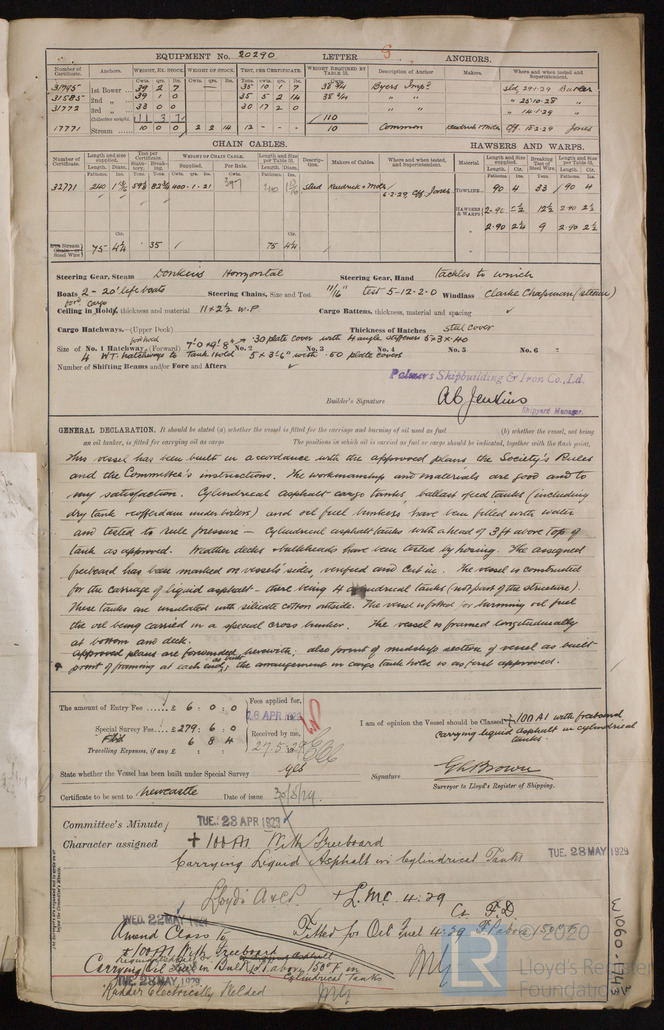 EQUIPMENT No. 20290 LETTER ANCHORS.
Number of Certificate. Anchors. WEIGHT, EX. STOCK WEIGHT OF STOCK. TEST, PER CERTIFICATE. WEIGHT REQUIRED BY TABLE 31. Description of Anchor Makers. Where and when tested and Superintendent.
Cwts. qrs. lbs. Cwts. qrs. lbs. Tons. Cwts. qrs. lbs. Cwts.
31745 1st Bower 39 2 7 35 10 1 7 38 3/4 Byers Imp. Sld 29.1.29
31585 2nd " 39 1 0 35 5 2 14 38 3/4 " " " 25.10.28 "
31772 3rd " 33 0 0 30 17 2 0 " " " 14.1.29 "
Collective weight 111 3 7 110
17771 Stream 10 0 0 2 2 14 12 - - - 10 Common 15.2.29 Jones
CHAIN CABLES. HAWSERS AND WARPS.
Number of Certificate. Length and size supplied. Test per Certificate. WEIGHT OF CHAIN CABLE. Length and Size per Table 31. Description. Makers of Cables. Where and when tested, and Superintendent. Material Length and Size supplied. Breaking Test of Steel Wire Length and Size per Table 31.
32771 240 400.1.21 240 stud 6.2.29 Jones TOWLINE 90 4 33 90 4
HAWSERS & WARPS 2-90 2 1/2 12 1/2 2.90 2 1/2
" 2.90 2 1/4 9 2.90 2 1/4
Stream Chain or Steel Wire 75 4 1/4 35 75 4 1/4
Steering Gear, Steam Donkins Horizontal Steering Gear, Hand tackles to winch
Boats 2 - 20' lifeboats Steering Chains, Size and Test 11/16" test 5-12-2-0 Windlass Clarke Chapman (steam)
Ceiling in Hold, thickness and material 11 x 2 1/2 W.P Cargo Battens, thickness, material and spacing
Cargo Hatchways.—(Upper Deck) Thickness of Hatches steel cover
Size of No. 1 Hatchway (Forward) 7'0 x 9' 8" No. 2 .30 plate cover with 4 angle stiffeners 5 x 3 x .40 No. 3 No. 4 No. 5 No. 6
4 WT. hatchways to Tank Hold 5 x 3'6" with .50 plate covers
Number of Shifting Beams and/or Fore and Afters
Palmers Shipbuilding & Iron Co., Ld.
Builder's Signature A.C. Jenkins
Shipyard Manager.
GENERAL DECLARATION. It should be stated (a) whether the vessel is fitted for the carriage and burning of oil used as fuel (b) whether the vessel, not being
an oil tanker, is fitted for carrying oil as cargo The positions in which oil is carried as fuel or cargo should be indicated, together with the flash point,
This vessel has been built in accordance with the approved plans the Society's Rules
and the Committee's instructions. The workmanship and materials are good and to
my satisfaction. Cylindrical asphalt cargo tanks, ballast feed tanks (including
dry tank & cofferdam under boilers) and oil fuel bunkers have been filled with water
and tested to rule pressure — Cylindrical asphalt tanks with a head of 3 ft above top of
tank as approved. Weather decks & bulkheads have been tested by hosing. The assigned
freeboard has been marked on vessels' sides, verified and cut in. The vessel is constructed
for the carriage of liquid asphalt — there being 4 cylindrical tanks (not part of the structure).
These tanks are insulated with silicate cotton outside. The vessel is fitted for burning oil fuel
the oil being carried in a special cross bunker. The vessel is framed longitudinally
at bottom and deck.
Approved plans are forwarded herewith; also print of midship section of vessel as built
print of framing at each end, as built; the arrangement in cargo tank hold is as first approved.
The amount of Entry Fee £ 6 : 0 : 0 Fees applied for,
26 APR 1929
Special Survey Fee £ 279 : 6 : 0
6 8 4 Received by me,
Travelling Expenses, if any £ : : 27.5.29
I am of opinion the Vessel should be Classed + 100 A1 with freeboard
carrying liquid asphalt in cylindrical
tanks.
State whether the Vessel has been built under Special Survey yes
Signature
Surveyor to Lloyd's Register of Shipping.
Certificate to be sent to Newcastle Date of issue 30/5/29.
Committee's Minute TUE. 23 APR 1929
Character assigned + 100 A1 With Freeboard TUE. 28 MAY 1929
Carrying Liquid Asphalt in Cylindrical Tanks
Lloyd's A & C.P. + L.M.C. 4.29
WED. 22 MAY 1929 F.D.
Amend Class to Fitted for Oil Fuel 4.29 F.P. above 150°F.
+ 100 A1 With Freeboard
Carrying Oil Fuel in Bulk F.P. above 150°F in
Cylindrical Tanks
TUE. 28 MAY 1929
Rudder Electrically Welded
W1060-1743
© 2020
LR
Lloyd's Register
Foundation